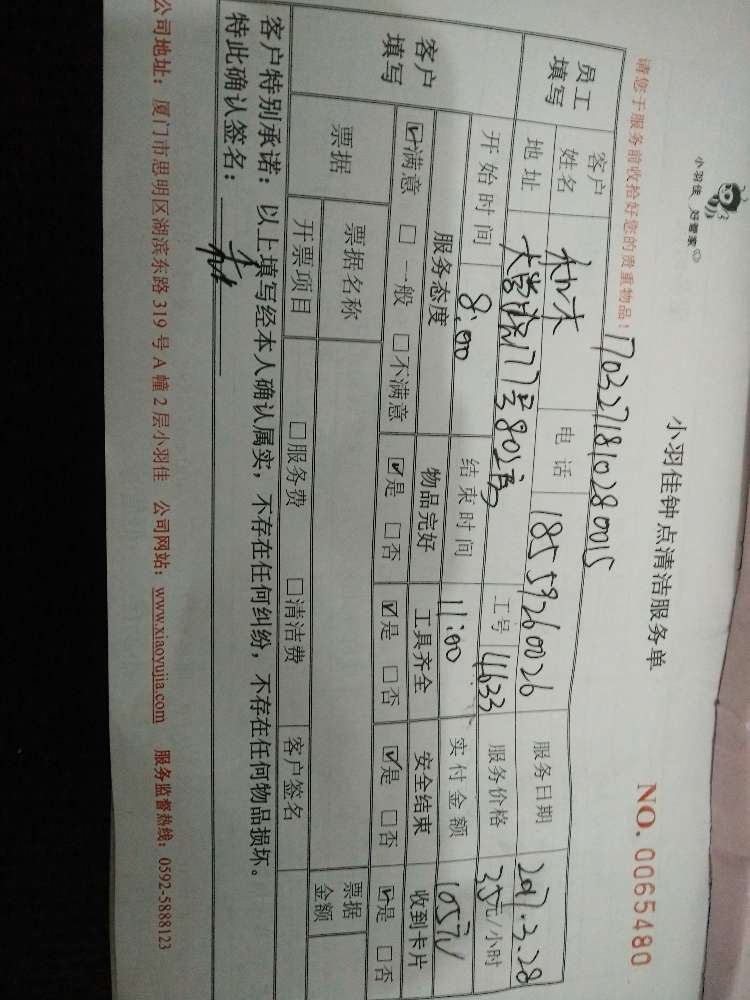 小羽佳 好管家
小羽佳钟点清洁服务单
NO. 0065480
请您于服务前收拾好您的贵重物品！
1703271810280015
员工填写 客户姓名 电话 18559260026 服务日期 2017.3.28
地址 177号801 工号 4633 服务价格 35元/小时
客户填写 开始时间 8:00 结束时间 11:00 实付金额 105元
服务态度 物品完好 工具齐全 安全结束 收到卡片
☑满意 □一般 □不满意 ☑是 □否 ☑是 □否 ☑是 □否 ☑是 □否
票据 票据名称 票据金额
开票项目 □服务费 □清洁费 客户签名
客户特别承诺：以上填写经本人确认属实，不存在任何纠纷，不存在任何物品损坏。
特此确认签名：
公司地址：厦门市思明区湖滨东路319号A幢2层小羽佳 公司网站：www.xiaoyujia.com 服务监督热线：0592-5888123